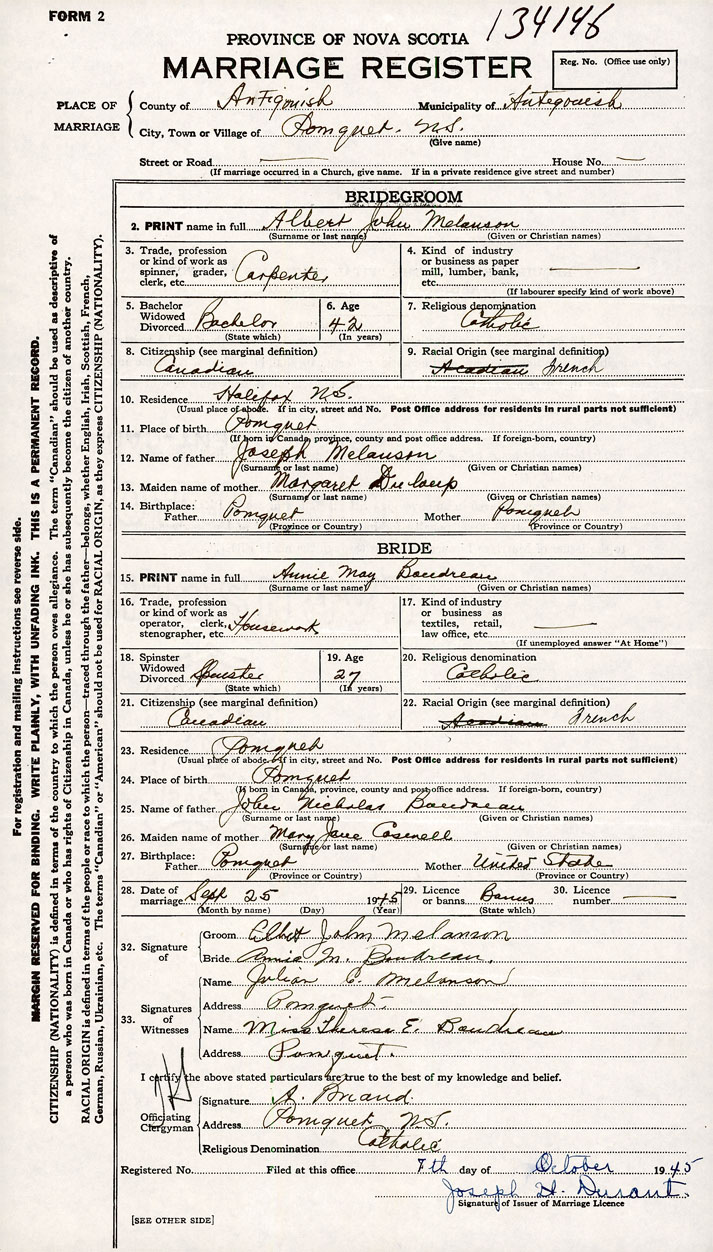 FORM 2
134146
PROVINCE OF NOVA SCOTIA
MARRIAGE REGISTER
Reg. No. (Office use only)
PLACE OF MARRIAGE
County of Antigonish Municipality of Antegonish
City, Town or Village of Pomquet. N.S.
(Give name)
Street or Road House No.
(If marriage occurred in a Church, give name. If in a private residence give street and number)
BRIDEGROOM
2. PRINT name in full Albert John Melanson
(Surname or last name) (Given or Christian names)
3. Trade, profession or kind of work as spinner, grader, clerk, etc. Carpenter
4. Kind of industry or business as paper mill, lumber, bank, etc.
(If labourer specify kind of work above)
5. Bachelor Widowed Divorced Bachelor
(State which)
6. Age 42
(In years)
7. Religious denomination
Catholic
8. Citizenship (see marginal definition)
Canadian
9. Racial Origin (see marginal definition)
Acadian French
10. Residence Halifax N.S.
(Usual place of abode. If in city, street and No. Post Office address for residents in rural parts not sufficient)
11. Place of birth Pomquet
(If born in Canada, province, county and post office address. If foreign-born, country)
12. Name of father Joseph Melanson
(Surname or last name) (Given or Christian names)
13. Maiden name of mother Margaret
(Surname or last name) (Given or Christian names)
14. Birthplace: Father Pomquet Mother Pomquet
(Province or Country) (Province or Country)
BRIDE
15. PRINT name in full Annie May Boudreau
(Surname or last name) (Given or Christian names)
16. Trade, profession or kind of work as operator, clerk, stenographer, etc. Housework
17. Kind of industry or business as textiles, retail, law office, etc.
(If unemployed answer "At Home")
18. Spinster Widowed Divorced Spinster
(State which)
19. Age 27
(In years)
20. Religious denomination
Catholic
21. Citizenship (see marginal definition)
Canadian
22. Racial Origin (see marginal definition)
Acadian French
23. Residence Pomquet
(Usual place of abode. If in city, street and No. Post Office address for residents in rural parts not sufficient)
24. Place of birth Pomquet
(If born in Canada, province, county and post office address. If foreign-born, country)
25. Name of father John Nicholas Boudreau
(Surname or last name) (Given or Christian names)
26. Maiden name of mother Mary Jane
(Surname or last name) (Given or Christian names)
27. Birthplace: Father Pomquet Mother United State
(Province or Country) (Province or Country)
28. Date of marriage Sept 25 1945
(Month by name) (Day) (Year)
29. Licence or banns Banns
(State which)
30. Licence number
32. Signature of
Groom Albert John Melanson
Bride Annie M. Boudreau.
33. Signatures of Witnesses
Name Julian C. Melanson
Address Pomquet.
Name Miss Theresa E. Boudreau
Address Pomquet.
I certify the above stated particulars are true to the best of my knowledge and belief.
Officiating Clergyman
Signature A. Briand.
Address Pomquet N.S.
Religious Denomination Catholic
Registered No. Filed at this office 7th day of October 1945
Joseph H. Durant.
Signature of Issuer of Marriage Licence
[SEE OTHER SIDE]
For registration and mailing instructions see reverse side.
MARGIN RESERVED FOR BINDING. WRITE PLAINLY, WITH UNFADING INK. THIS IS A PERMANENT RECORD.
CITIZENSHIP (NATIONALITY) is defined in terms of the country to which the person owes allegiance. The term "Canadian" should be used as descriptive of
a person who was born in Canada or who has rights of Citizenship in Canada, unless he or she has subsequently become the citizen of another country.
RACIAL ORIGIN is defined in terms of the people or race to which the person—traced through the father—belongs, whether English, Irish, Scottish, French,
German, Russian, Ukrainian, etc. The terms "Canadian" or "American" should not be used for RACIAL ORIGIN, as they express CITIZENSHIP (NATIONALITY).